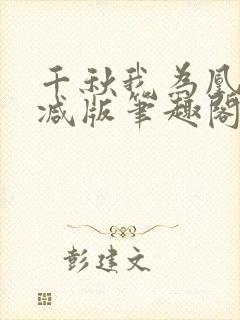 千秋我为凰
减版笔趣阁
彭建文